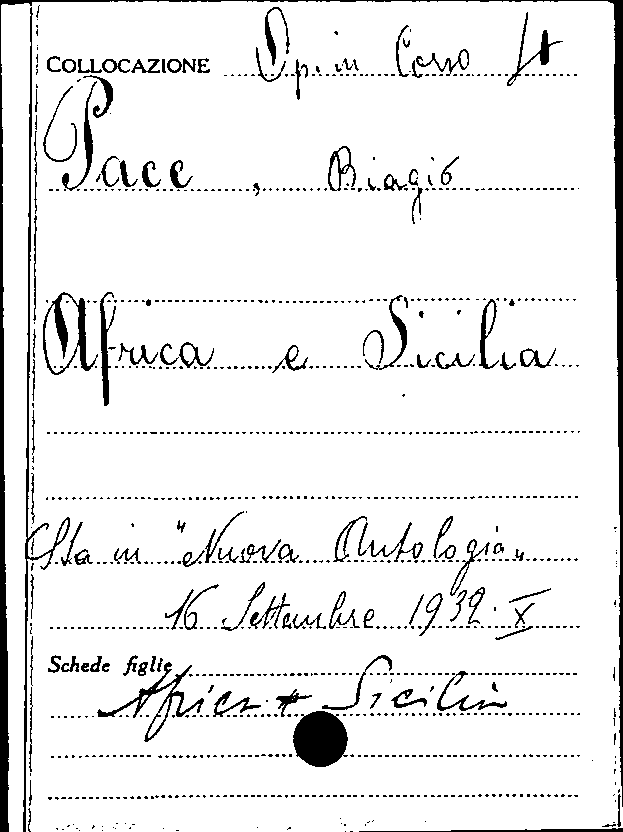 COLLOCAZIONE Op. in Corso
Pace, Biagio
Africa e Sicilia
Sta in "Nuova Antologia„
16 Settembre 1932. X
Schede figlie
Africa + Sicilia